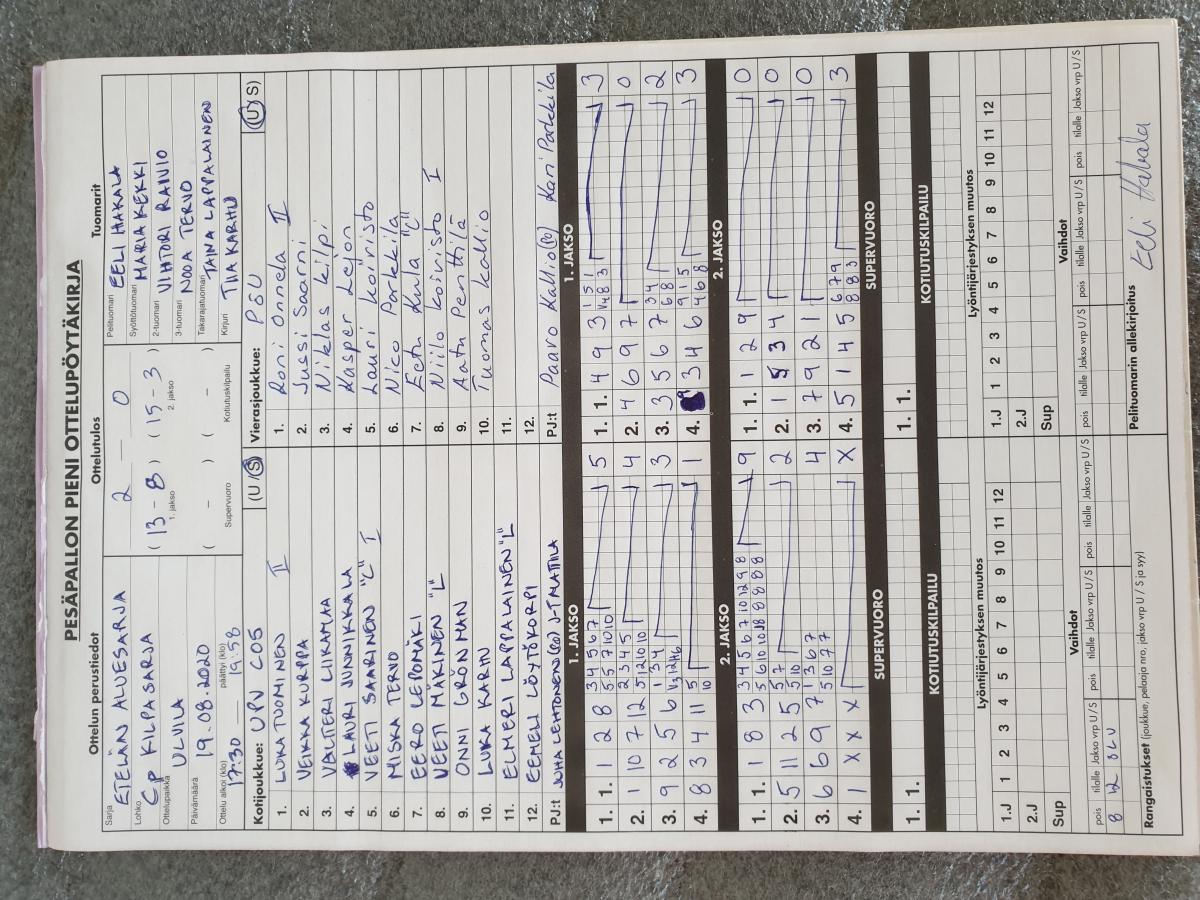 PESÄPALLON PIENI OTTELUPÖYTÄKIRJA
Ottelun perustiedot
Sarja
ETELÄN ALUESARJA
Lohko
CP KILPASARJA
Ottelupaikka
ULVILA
Päivämäärä
19.08.2020
Ottelu alkoi (klo)
17:30
päättyi (klo)
19:58
Ottelutulos
2 — 0
( 13 - 8 ) ( 15 - 3 )
1. jakso 2. jakso
( - ) ( - )
Supervuoro Kotiutuskilpailu
Tuomarit
Pelituomari EELI HAKALA
Syöttötuomari MARIA KEKKI
2-tuomari VIHTORI RAIVIO
3-tuomari NOOA TERVO
Takarajatuomari TAINA LAPPALAINEN
Kirjuri TIIA KARHU
Kotijoukkue: UPV C05 (U/S)
1. LUKA TUOMINEN II
2. VEIKKA KURPPA
3. VALTTERI LIIKAMAA
4. LAURI JUNNIKKALA
5. VEETI SAARINEN "C" I
6. MISKA TERVO
7. EERO LEPOMÄKI
8. VEETI MÄKINEN "L"
9. ONNI GRÖNMAN
10. LUKA KARHU
11. ELMERI LAPPALAINEN "L"
12. EEMELI LÖYTÖKORPI
PJ:t JUHA LEHTONEN (PJ) J-T MATTILA
Vierasjoukkue: PSU (U/S)
1. Roni Onnela II
2. Jussi Saarni
3. Niklas Kilpi
4. Kasper Lejon
5. Lauri Koivisto
6. Nico Parkkila
7. Eetu Kulla "C"
8. Niilo Koivisto I
9. Aatu Penttilä
10. Tuomas Kallio
11.
12.
PJ:t Paavo Kallio (PJ) Kari Parkkila
1. JAKSO
1. 1. 1 2 8 3 4 5 6 7 5
5 5 7 10 10
2. 1 10 7 12 2 3 4 5 4
5 12 10 10
3. 9 2 5 6 1 3 4 3
4. 8 3 4 11 5 1
10
1. JAKSO
1. 1. 4 9 3 1 5 1 3
2. 4 6 9 7 0
3. 3 5 6 7 3 4 2
6 8
4. 3 4 6 9 1 5 3
4 6 8
2. JAKSO
1. 1. 1 8 3 3 4 5 6 7 10 12 9 8 9
5 6 10 10 8 8 8 8 8
2. 5 11 2 5 5 7 2
5 10
3. 6 6 9 7 1 3 6 7 4
5 10 7 7
4. 1 X X X X
2. JAKSO
1. 1. 1 2 9 0
2. 1 5 3 4 0
3. 7 9 2 1 0
4. 5 1 4 5 6 7 9 3
8 8 3
SUPERVUORO
1. 1.
SUPERVUORO
1. 1.
KOTIUTUSKILPAILU
KOTIUTUSKILPAILU
Lyöntijärjestyksen muutos
1.J 1 2 3 4 5 6 7 8 9 10 11 12
2.J
Sup
Lyöntijärjestyksen muutos
1.J 1 2 3 4 5 6 7 8 9 10 11 12
2.J
Sup
Vaihdot
pois tilalle Jakso vrp U/S pois tilalle Jakso vrp U/S pois tilalle Jakso vrp U/S
8 12
Vaihdot
pois tilalle Jakso vrp U/S pois tilalle Jakso vrp U/S pois tilalle Jakso vrp U/S
Rangaistukset (joukkue, pelaaja nro, jakso vrp U / S ja syy)
Pelituomarin allekirjoitus
Eeli Hakala